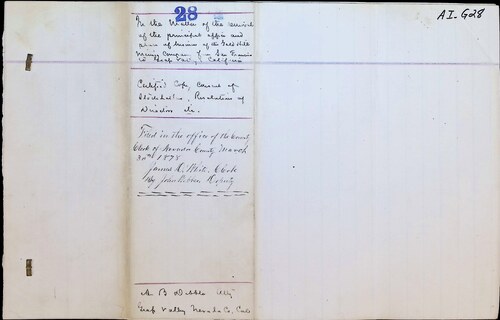 28
AI-G28
In the Matter of the removal
of the principal office and
place of business of the Gold Hill
Mining Company from San Francisco
to Grass Valley, California
Certified Copy Consent of
Stockholders, Resolution of
Directors etc.
Filed in the office of the County
Clerk of Nevada County March
1878
James D. White Clerk
By John Deputy
A. B. Dibble Atty
Grass Valley Nevada Co. Cal